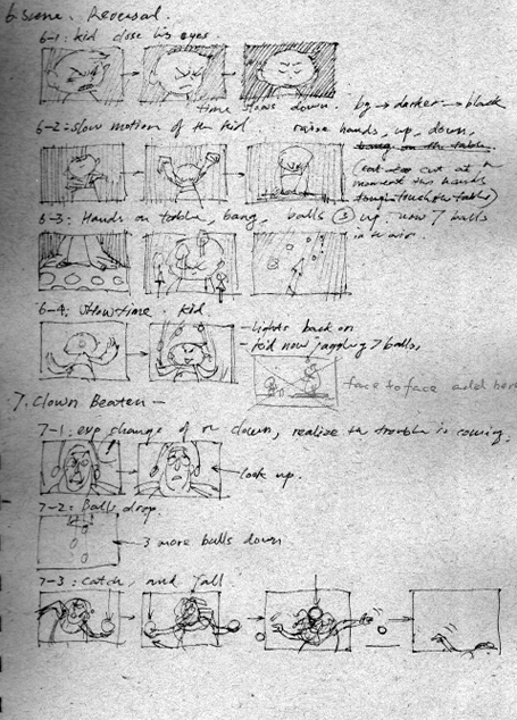 6. Scene. Reversal.
6-1: kid close his eyes.
time slows down. bg → darker → black
6-2: slow motion of the kid. raise hands, up, down,
bang on the table.
cut at
moment the hands
touch the table)
6-3: Hands on table, bang, balls ③ up. now 7 balls
in air
6-4: Showtime. kid.
- lights back on
- kid now juggling 7 balls,
face to face add here
7. Clown Beaten —
7-1: exp change of clown, realize the trouble is coming.
look up.
7-2: Balls drop.
3 more balls down
7-3: catch, and fall.